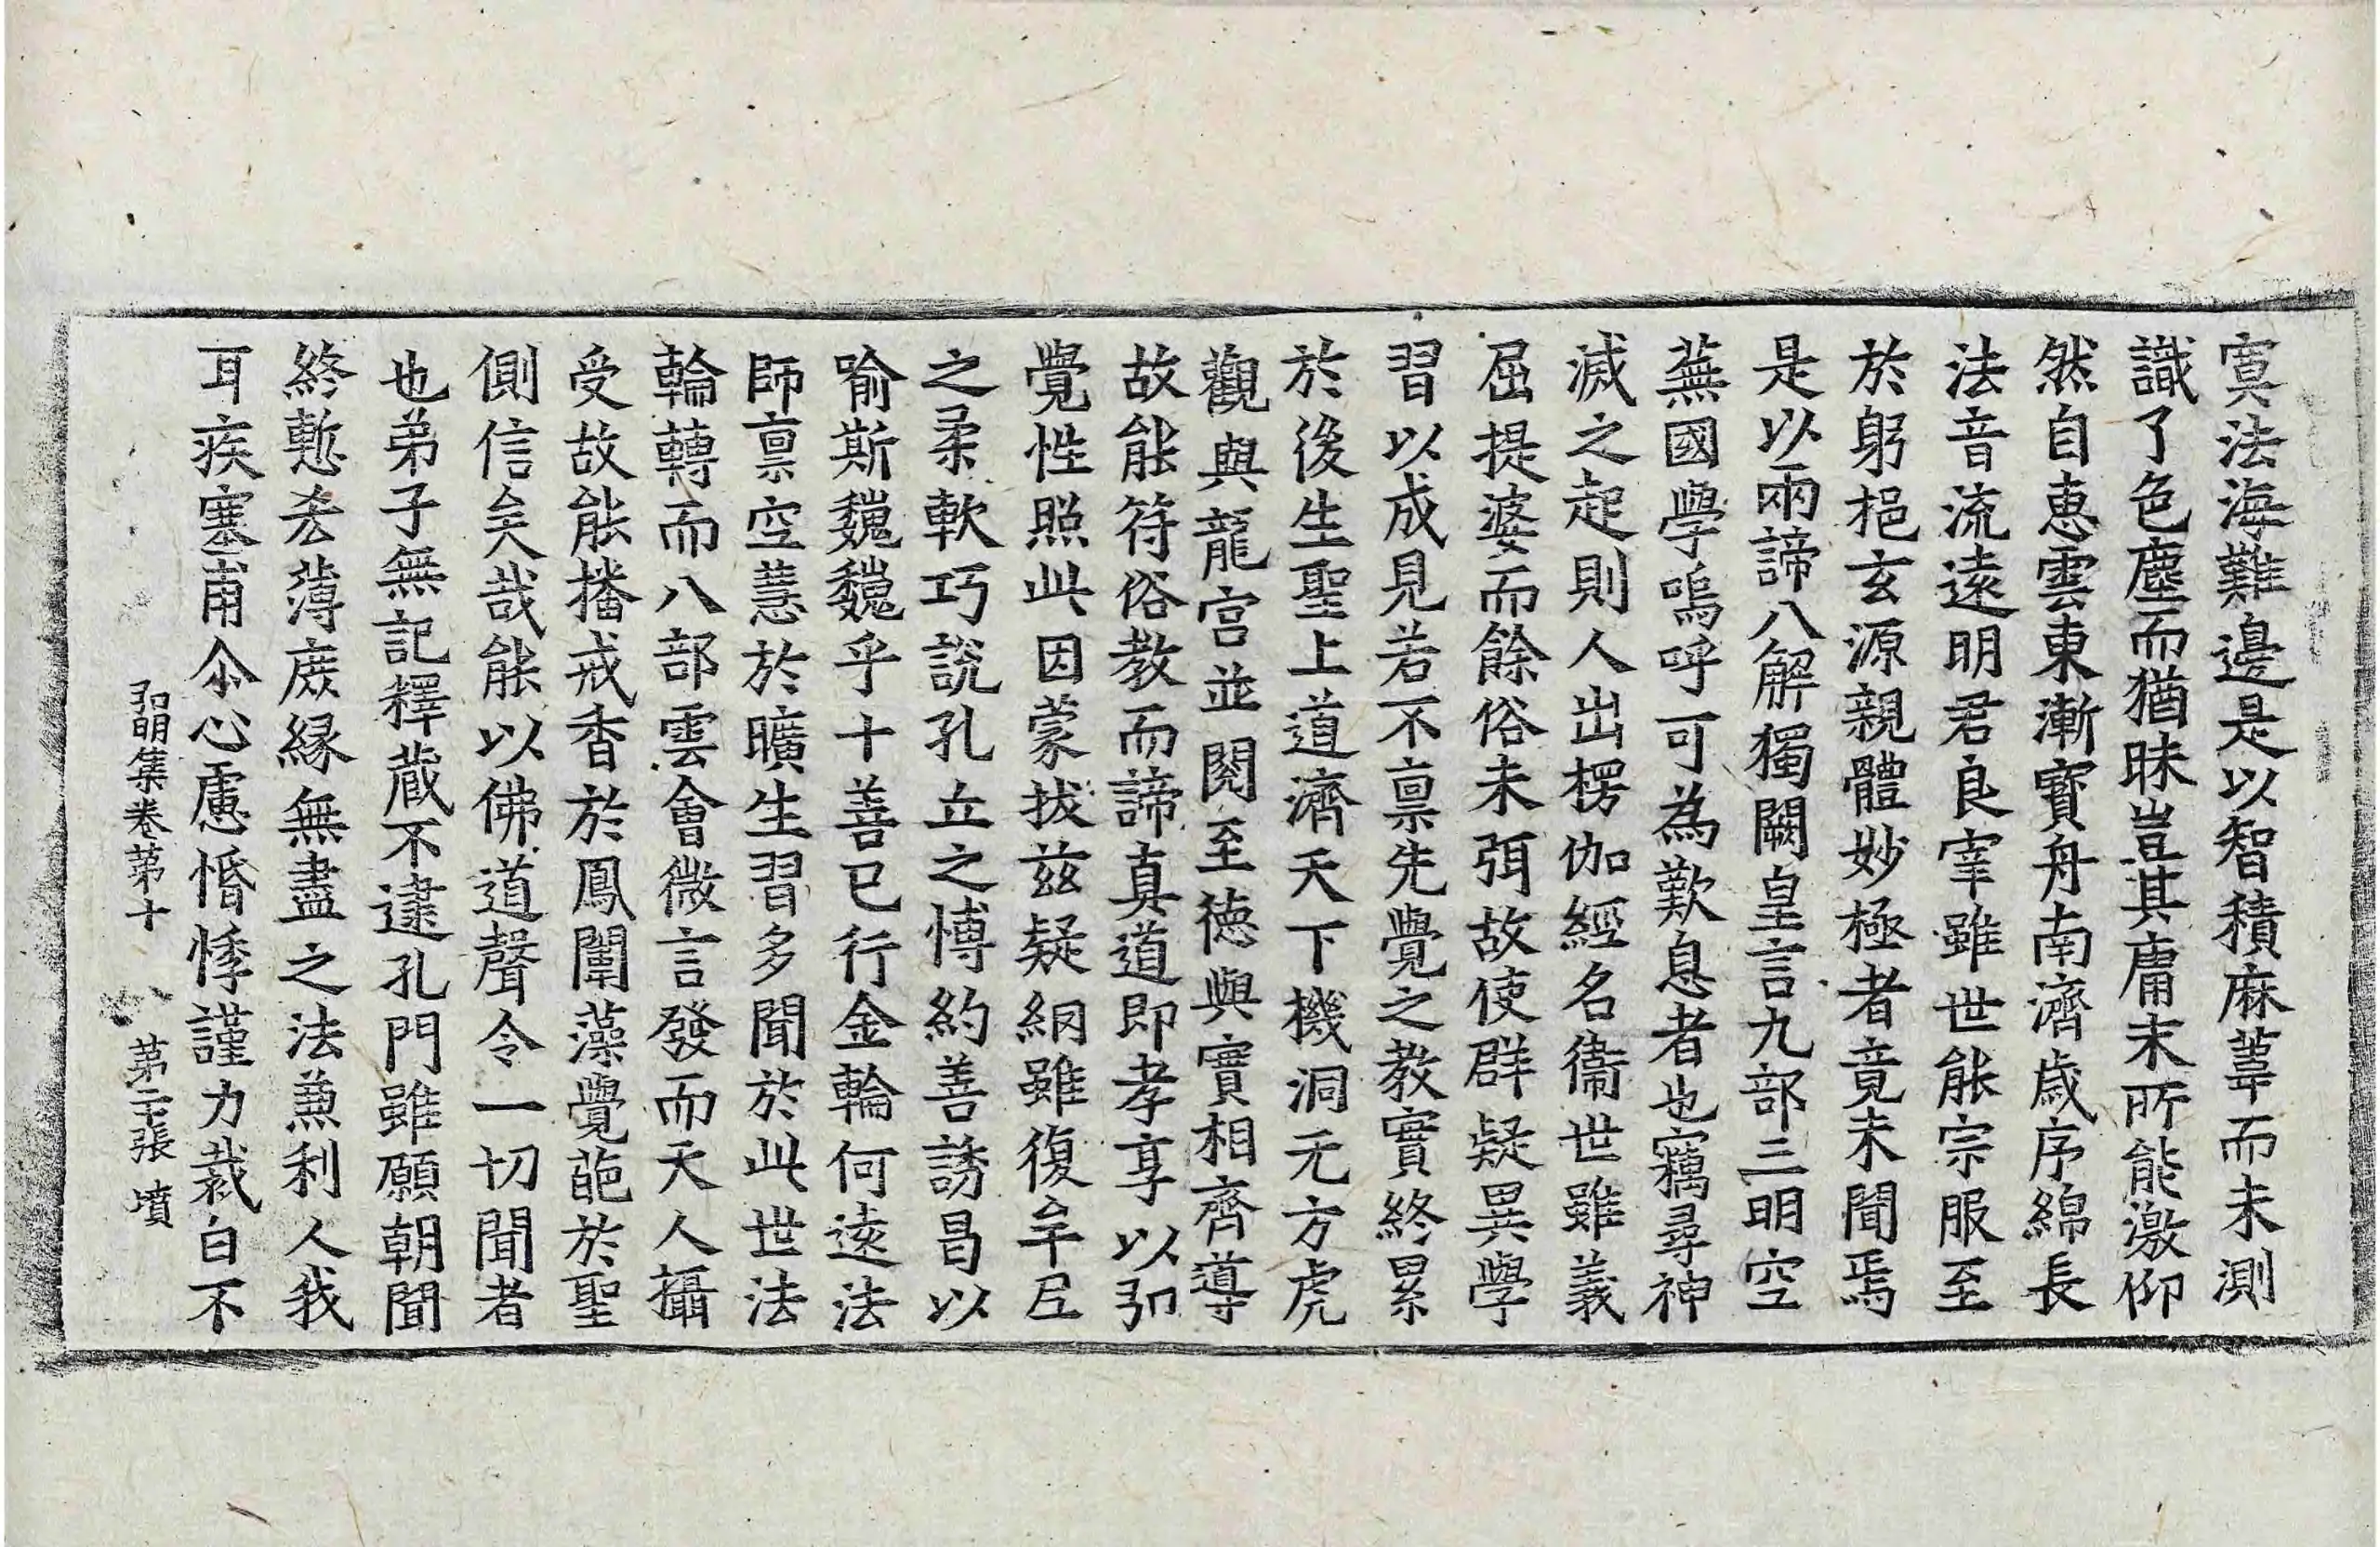 寞法海難邊是以智積麻葦而未測
識了色塵而猶昧豈其庸末所能激仰
然自惠雲東漸寶舟南濟歳序綿長
法音流遠明君良宰雖世能宗服至
於躬挹玄源親體妙極者竟未聞焉
是以兩諦八解獨闕皇言九部三明空
蕪國學嗚呼可為歎息者也竊尋神
滅之起則人出楞伽經名衞世雖義
屈提婆而餘俗未弭故使群疑異學
習以成見若不禀先覺之教實終累
於後生聖上道濟天下機洞无方虎
觀與龍宫並閱至德與實相齊導
故能符俗教而諦真道即孝享以弘
覺性照此因蒙拔兹疑網雖復牟尼
之柔軟巧說孔丘之博約善誘曷以
喻斯魏魏乎十善已行金輪何遠法
師禀空慧於曠生習多聞於此世法
輪轉而八部雲會微言發而天人攝
受故能播戒香於鳳闈藻覺葩於聖
側信矣哉能以佛道聲令一切聞者
也弟子無記釋藏不逮孔門雖願朝聞
終慙吝薄庶縁無盡之法兼利人我
耳疾塞甫尒心慮惛悸謹力裁白不
弘明集卷第十 第二十張 墳